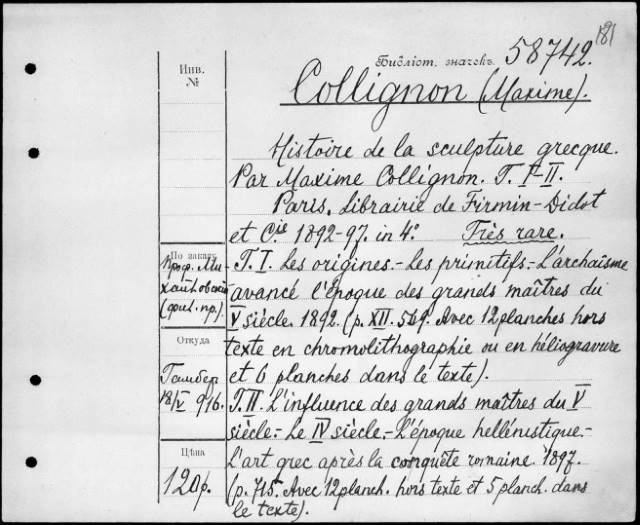 181
Библіот. значекъ 58742.
Инв.
№
Collignon (Maxime).
Histoire de la sculpture grecque.
Par Maxime Collignon. T. I-II.
Paris. Librairie de Firmin-Didot
et C.ie 1892-97. in 4.° Très rare.
По заказу
Проф. Ми-
хайловскаго
(фил. пр.).
T. I. Les origines.- Les primitifs.- L'archaïsme
avancé l'époque des grands maîtres du
V siècle. 1892. (p. XII. 569. Avec 12 planches hors
texte en chromolithographie ou en héliogravure
et 6 planches dans le texte).
Откуда
18/V 916.
T. II. L'influence des grands maîtres du V
siècle.- Le IV siècle.- L'époque hellénistique.-
L'art grec après la conquête romaine. 1897.
(p. 715. Avec 12 planch. hors texte et 5 planch. dans
le texte).
Цѣна
120р.